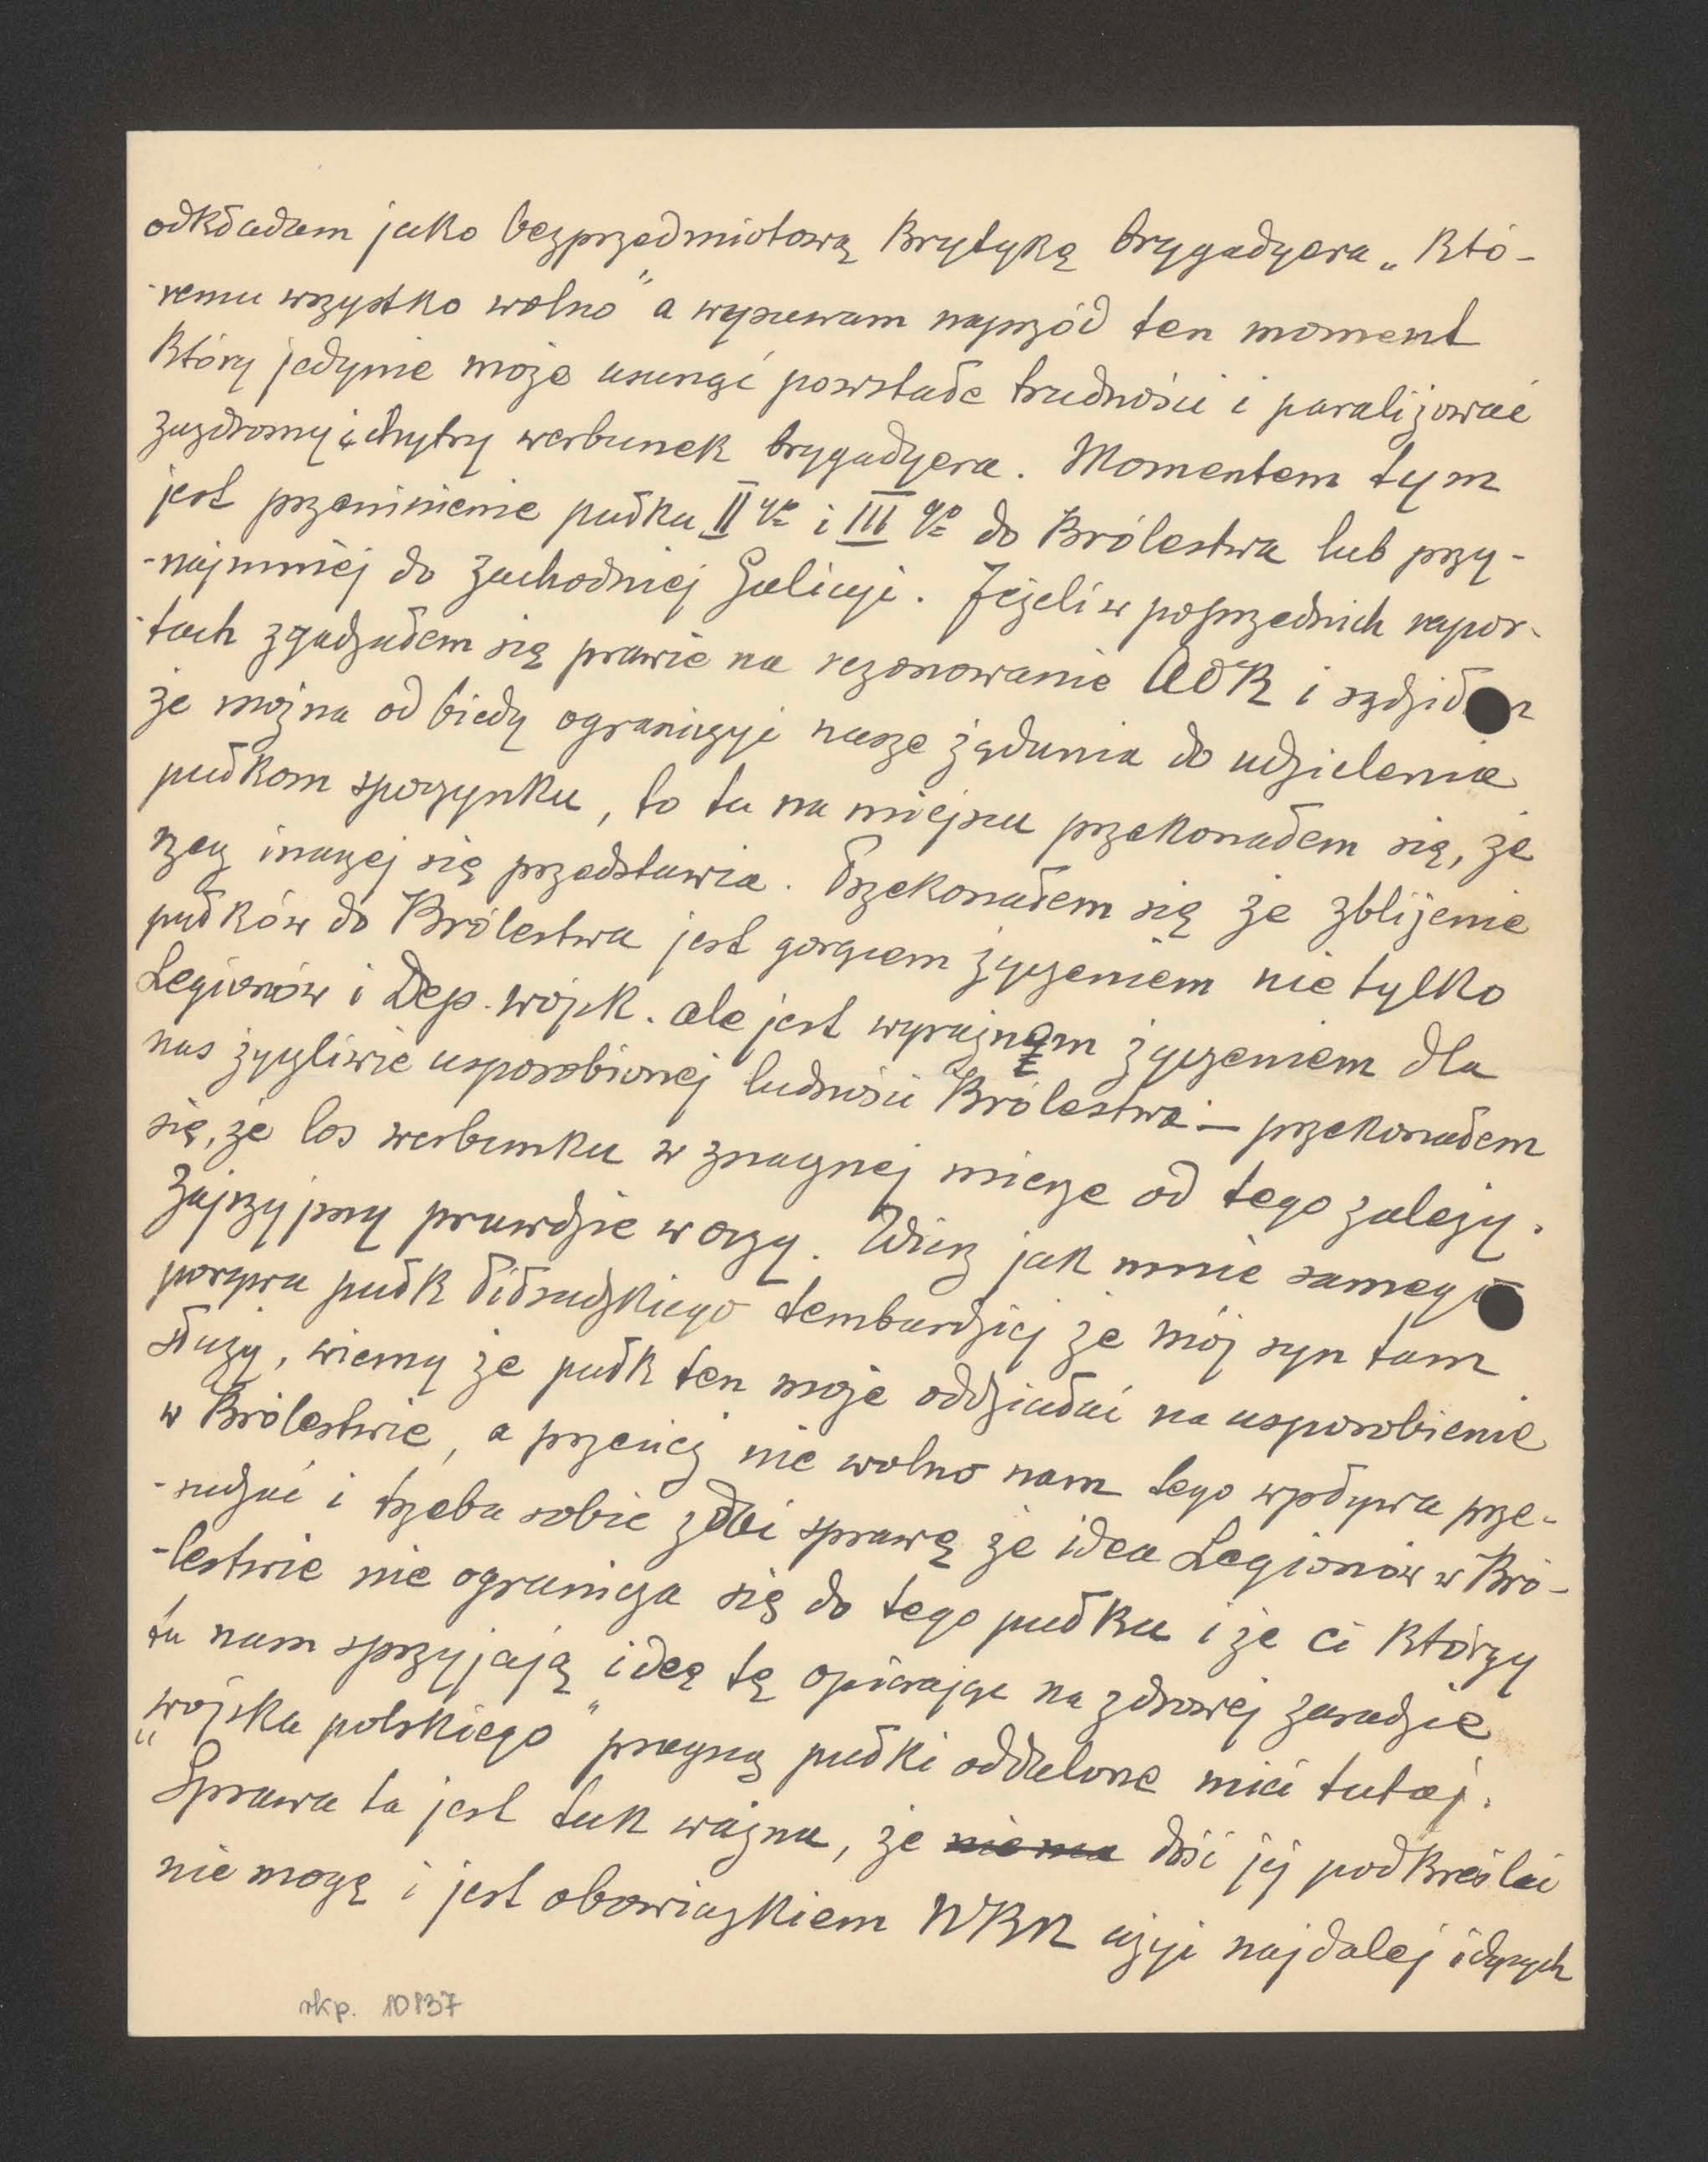 odkładam jako bezprzedmiotową krytykę brygadyera „któ-
-remu wszystko wolno" a wysuwam naprzód ten moment
który jedynie może usunąć powstałe trudności i paraliżować
zazdrosny i chytry werbunek brygadyera. Momentem tym
jest przeniesienie pułku II go i III go do Królestwa lub przy-
-najmniej do zachodniej Galicyi. Jeżeli w poprzednich rapor-
-tach zgadzałem się prawie na rezonowanie AOK i sądziłem
że można od biedy ograniczyć nasze żądania do udzielenia
pułkom spoczynku, to tu na miejscu przekonałem się, że
rzecz inaczej się przedstawia. Przekonałem się że zbliżenie
pułków do Królestwa jest gorącem życzeniem nie tylko
Legionów i Dep. wojsk. ale jest wyraźnem życzeniem dla
nas życzliwie usposobionej ludności Królestwa – przekonałem
się, że los werbunku w znacznej mierze od tego zależy.
Zajrzyjmy prawdzie w oczy. Widzę jak mnie samego
porywa pułk Piłsudskiego tembardziej że mój syn tam
służy, wiemy że pułk ten może oddziałać na usposobienie
w Królestwie, a przecież nie wolno nam tego wpływu prze-
-sadzać i trzeba sobie zdać sprawę że idea Legionów w Kró-
-lestwie nie ogranicza się do tego pułku i że ci którzy
tu nam sprzyjają ideę tę opierając na zdrowej zasadzie
„wojska polskiego" pragną pułki oddalone mieć tutaj.
Sprawa ta jest tak ważna, że nie ma dość jej podkreślać
nie mogę i jest obowiązkiem NKN użyć najdalej idących
rkp. 10837